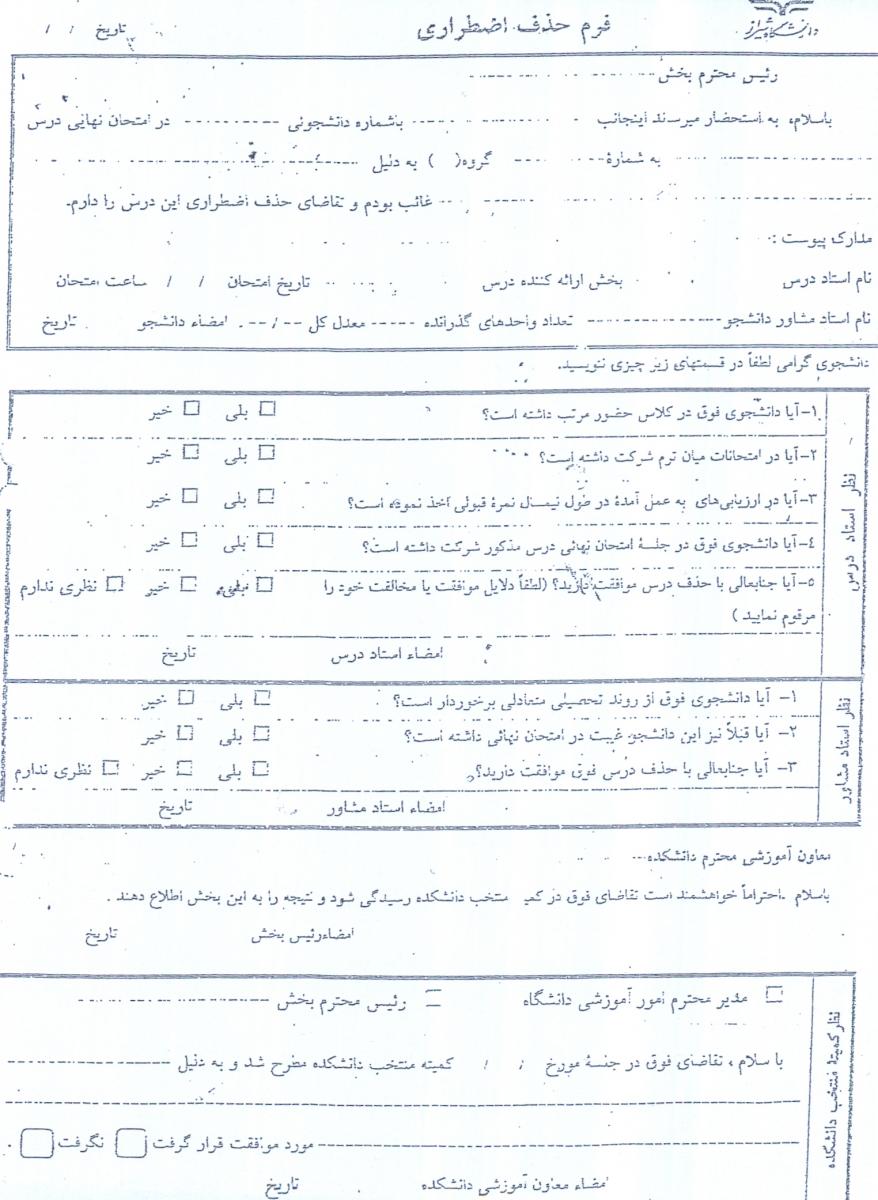 دانشگاه شیراز
فرم حذف اضطراری
تاریخ / /
رئیس محترم بخش
باسلام، به استحضار میرساند اینجانب باشماره دانشجوئی در امتحان نهایی درس
به شمارۀ گروه( ) به دلیل
غائب بودم و تقاضای حذف اضطراری این درس را دارم.
مدارک پیوست :
نام استاد درس بخش ارائه کننده درس تاریخ امتحان / / ساعت امتحان
نام استاد مشاور دانشجو تعداد واحدهای گذرانده معدل کل --/--. امضاء دانشجو تاریخ
دانشجوی گرامی لطفاً در قسمتهای زیر چیزی ننویسید.
نظر استاد درس
۱-آیا دانشجوی فوق در کلاس حضور مرتب داشته است؟ بلی خیر
۲-آیا در امتحانات میان ترم شرکت داشته است؟ بلی خیر
۳-آیا در ارزیابی‌های به عمل آمدۀ در طول نیمسال نمرۀ قبولی اخذ نموده است؟ بلی خیر
٤-آیا دانشجوی فوق در جلسۀ امتحان نهائی درس مذکور شرکت داشته است؟ بلی خیر
۵-آیا جنابعالی با حذف درس موافقت دارید؟ (لطفاً دلایل موافقت یا مخالفت خود را بلی خیر نظری ندارم
مرقوم نمایید )
امضاء استاد درس تاریخ
نظر استاد مشاور
۱- آیا دانشجوی فوق از روند تحصیلی متعادلی برخوردار است؟ بلی خیر
۲- آیا قبلاً نیز این دانشجو غیبت در امتحان نهائی داشته است؟ بلی خیر
۳- آیا جنابعالی با حذف درس فوق موافقت دارید؟ بلی خیر نظری ندارم
امضاء استاد مشاور تاریخ
معاون آموزشی محترم دانشکده
باسلام .احتراماً خواهشمند است تقاضای فوق در کمی منتخب دانشکده رسیدگی شود و نتیجه را به این بخش اطلاع دهند .
امضاءرئیس بخش تاریخ
نظر کمیتۀ منتخب دانشکده
مدیر محترم امور آموزشی دانشگاه رئیس محترم بخش
با سلام ، تقاضای فوق در جلسۀ مورخ / / کمیته منتخب دانشکده مطرح شد و به دلیل
مورد موافقت قرار گرفت نگرفت .
امضاء معاون آموزشی دانشکده تاریخ